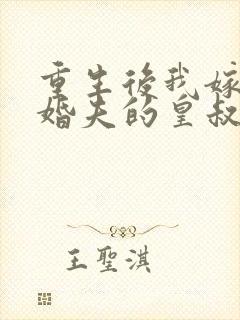 重生後我嫁
婚夫的皇叔
王聖淇